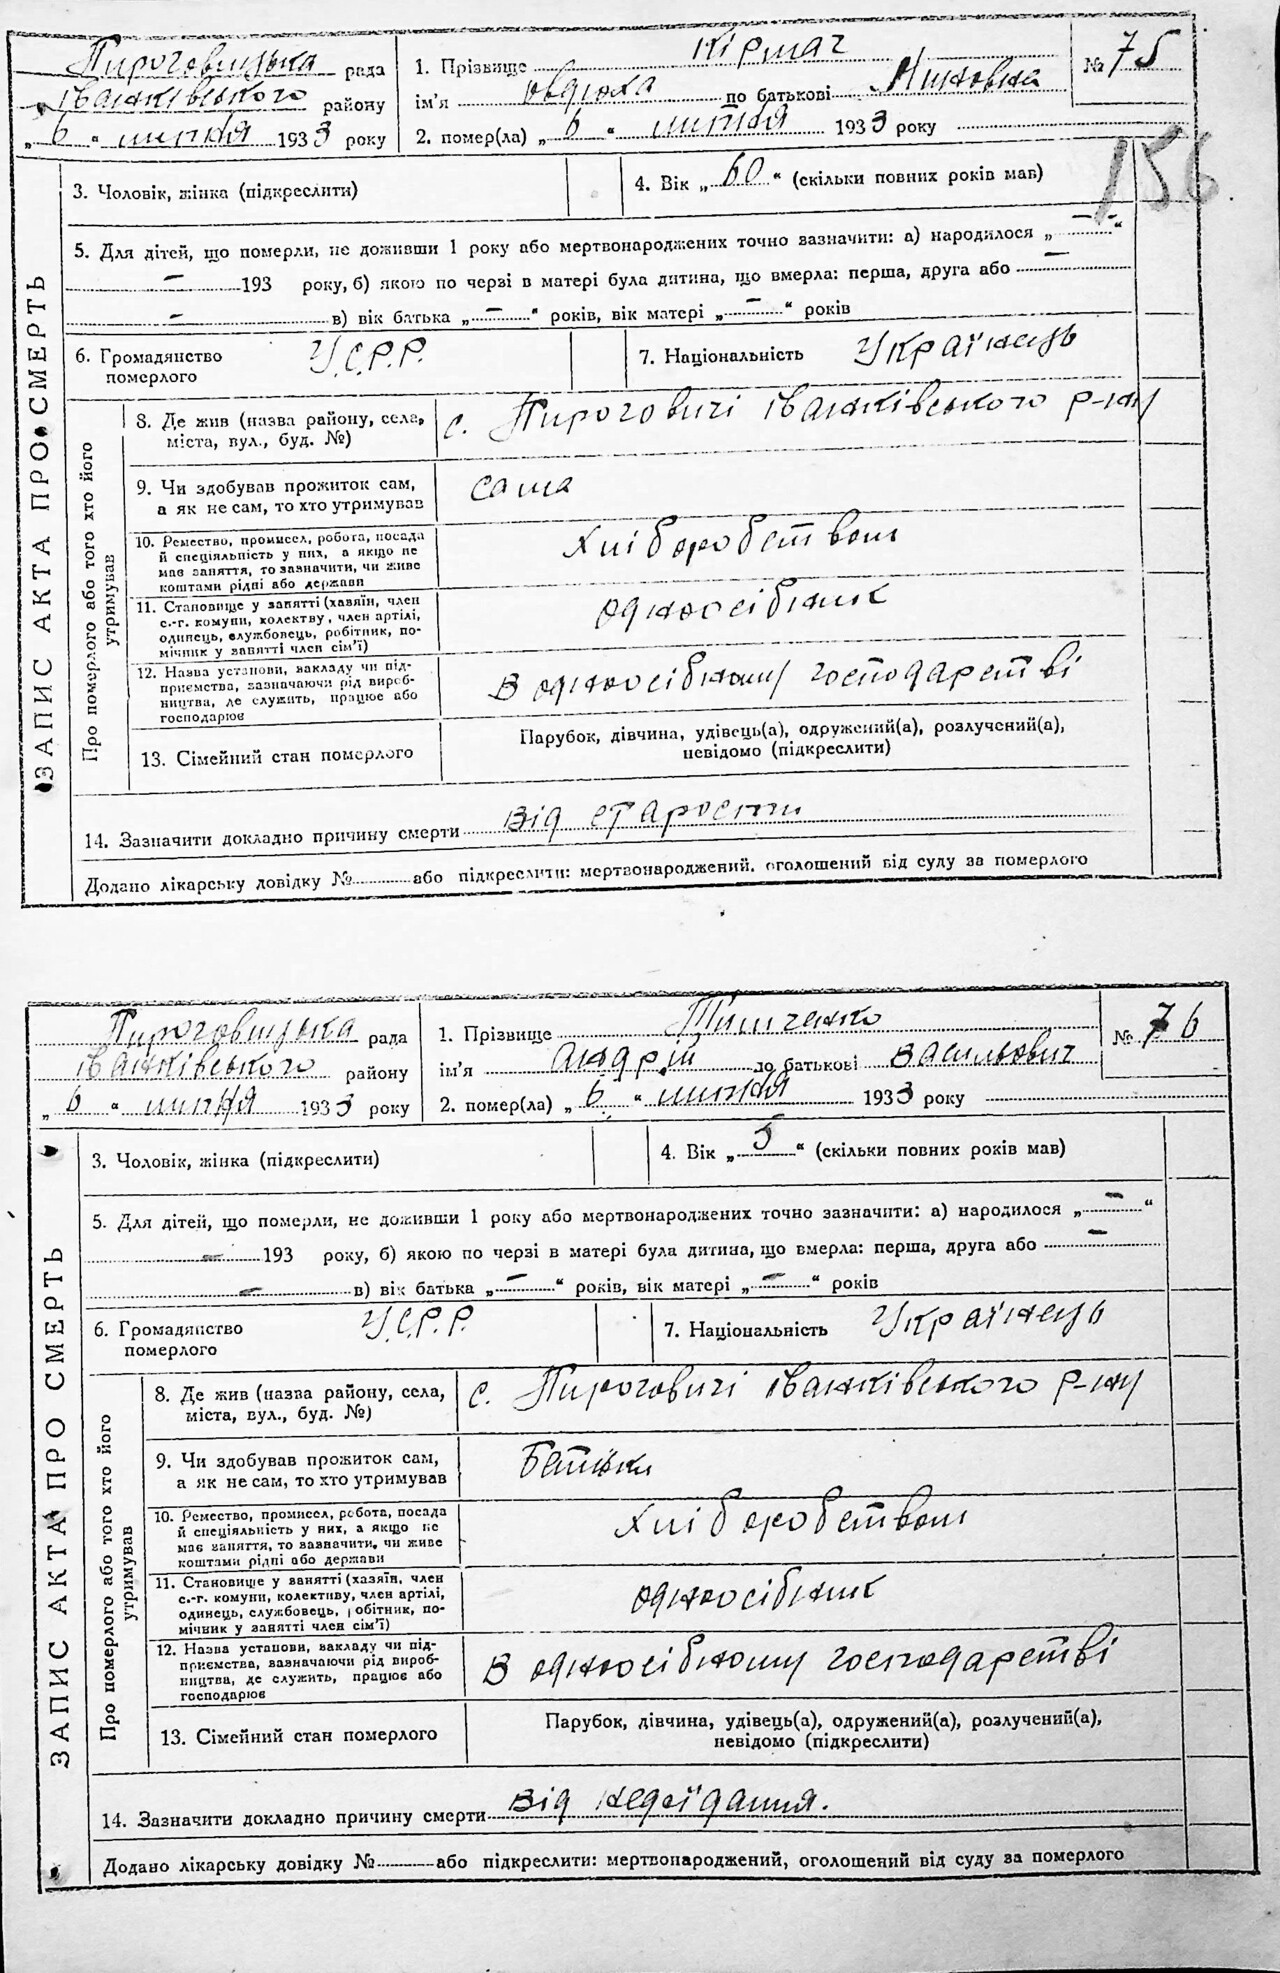 Пироговицька рада
Іванківського району
„ 6 “ липня 1933 року
1. Прізвище Кірмач
ім'я Овдюха по батькові
2. помер(ла) „ 6 “ липня 1933 року
№ 75
156
ЗАПИС АКТА ПРО СМЕРТЬ
3. Чоловік, жінка (підкреслити)
4. Вік „ 60 “ (скільки повних років мав)
5. Для дітей, що померли, не доживши 1 року або мертвонароджених точно зазначити: а) народилося „ — “
— 193 року, б) якою по черзі в матері була дитина, що вмерла: перша, друга або —
— в) вік батька „ — “ років, вік матері „ — “ років
6. Громадянство
померлого
У.С.Р.Р.
7. Національність Українець
Про померлого або того хто його
утримував
8. Де жив (назва району, села,
міста, вул., буд. №)
с. Пироговичі Іванківського р-ну
9. Чи здобував прожиток сам,
а як не сам, то хто утримував
сама
10. Ремество, промисел, робота, посада
й спеціяльність у них, а якщо не
має заняття, то зазначити, чи живе
коштами рідні або держави
Хліборобством
11. Становище у занятті (хазяїн, член
с.-г. комуни, колективу, член артілі,
одинець, службовець, робітник, по-
мічник у занятті член сім'ї)
одноосібник
12. Назва установи, закладу чи під-
приємства, зазначаючи рід вироб-
ництва, де служить, працює або
господарює
в одноосібному господарстві
13. Сімейний стан померлого
Парубок, дівчина, удівець(а), одружений(а), розлучений(а),
невідомо (підкреслити)
14. Зазначити докладно причину смерти від старости
Додано лікарську довідку № або підкреслити: мертвонароджений, оголошений від суду за померлого
Пироговицька рада
Іванківського району
„ 6 “ липня 1933 року
1. Прізвище Тимченко
ім'я Андрій по батькові Васильович
2. помер(ла) „ 6 “ липня 1933 року
№ 76
ЗАПИС АКТА ПРО СМЕРТЬ
3. Чоловік, жінка (підкреслити)
4. Вік „ 5 “ (скільки повних років мав)
5. Для дітей, що померли, не доживши 1 року або мертвонароджених точно зазначити: а) народилося „ — “
— 193 року, б) якою по черзі в матері була дитина, що вмерла: перша, друга або —
— в) вік батька „ — “ років, вік матері „ — “ років
6. Громадянство
померлого
У.С.Р.Р.
7. Національність Українець
Про померлого або того хто його
утримував
8. Де жив (назва району, села,
міста, вул., буд. №)
с. Пироговичі Іванківського р-ну
9. Чи здобував прожиток сам,
а як не сам, то хто утримував
Батьки
10. Ремество, промисел, робота, посада
й спеціяльність у них, а якщо не
має заняття, то зазначити, чи живе
коштами рідні або держави
Хліборобством
11. Становище у занятті (хазяїн, член
с.-г. комуни, колективу, член артілі,
одинець, службовець, робітник, по-
мічник у занятті член сім'ї)
одноосібник
12. Назва установи, закладу чи під-
приємства, зазначаючи рід вироб-
ництва, де служить, працює або
господарює
в одноосібному господарстві
13. Сімейний стан померлого
Парубок, дівчина, удівець(а), одружений(а), розлучений(а),
невідомо (підкреслити)
14. Зазначити докладно причину смерти від недоїдання.
Додано лікарську довідку № або підкреслити: мертвонароджений, оголошений від суду за померлого